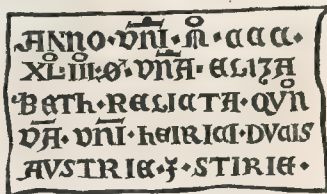 ANNO · DNI · M · CCC ·
XL · III · O · DNA · ELIZA
BETH · RELICTA · QVN
DA · DNI · HEIRICI · DVCIS
AVSTRIE · ⁊ · STIRIE ·